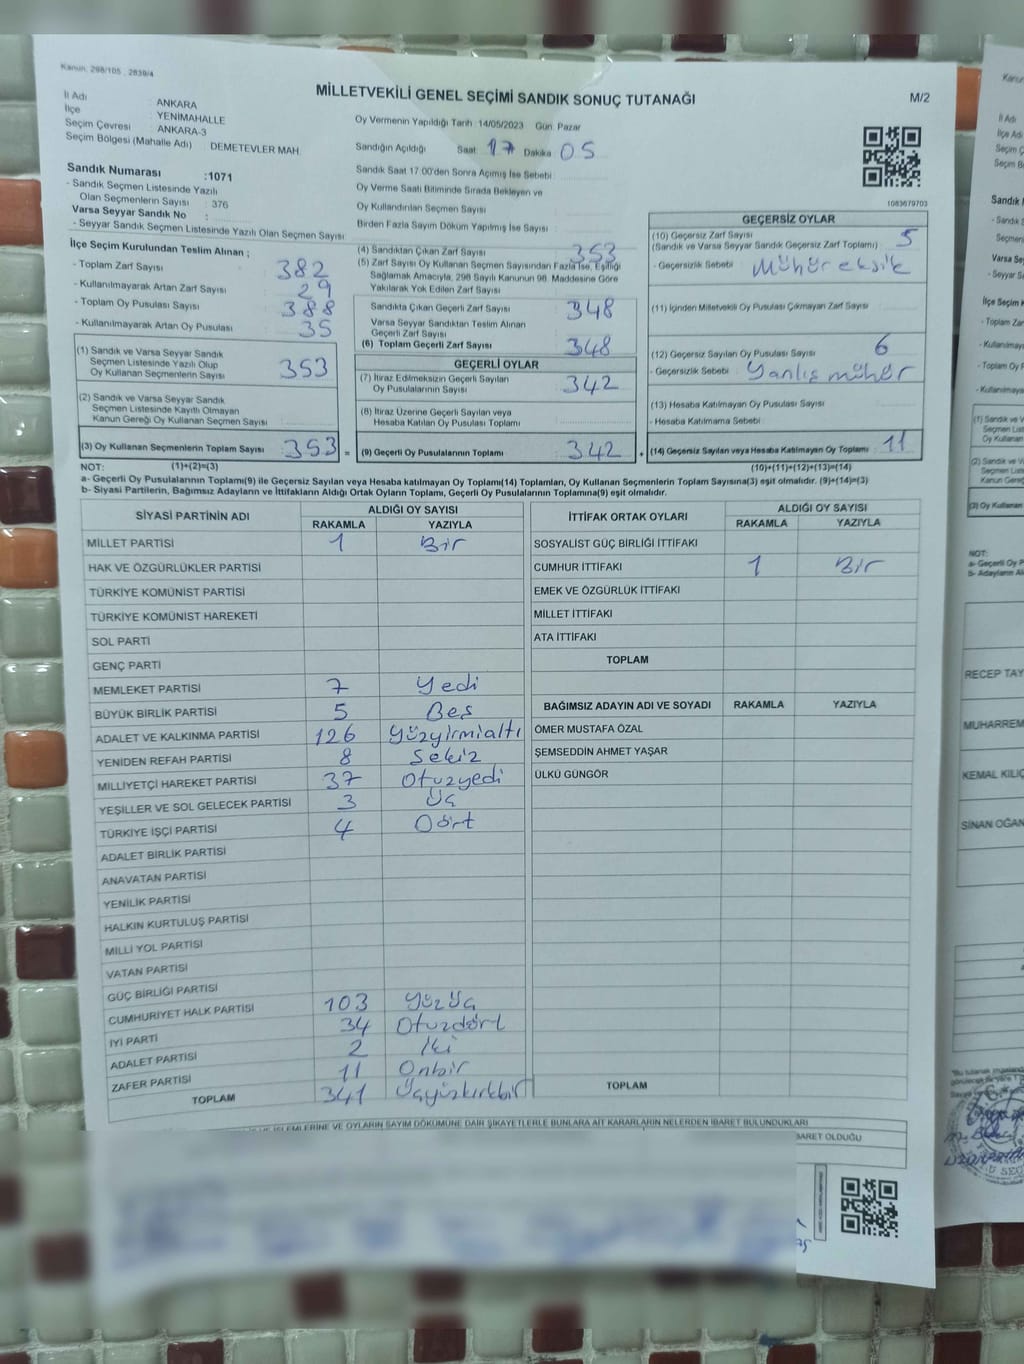 Kanun: 298/105 , 2839/4
MİLLETVEKİLİ GENEL SEÇİMİ SANDIK SONUÇ TUTANAĞI
M/2
İl Adı : ANKARA
İlçe : YENİMAHALLE
Seçim Çevresi : ANKARA-3
Seçim Bölgesi (Mahalle Adı) DEMETEVLER MAH.
Sandık Numarası :1071
- Sandık Seçmen Listesinde Yazılı
Olan Seçmenlerin Sayısı : 376
Varsa Seyyar Sandık No :
- Seyyar Sandık Seçmen Listesinde Yazılı Olan Seçmen Sayısı
Oy Vermenin Yapıldığı Tarih :14/05/2023 Gün: Pazar
Sandığın Açıldığı Saat: 17 Dakika 05
Sandık Saat 17:00'den Sonra Açılmış İse Sebebi :
Oy Verme Saati Bitiminde Sırada Bekleyen ve
Oy Kullandırılan Seçmen Sayısı
Birden Fazla Sayım Döküm Yapılmış İse Sayısı :
1083679703
İlçe Seçim Kurulundan Teslim Alınan ;
- Toplam Zarf Sayısı : 382
- Kullanılmayarak Artan Zarf Sayısı : 29
- Toplam Oy Pusulası Sayısı : 388
- Kullanılmayarak Artan Oy Pusulası : 35
(1) Sandık ve Varsa Seyyar Sandık
Seçmen Listesinde Yazılı Olup
Oy Kullanan Seçmenlerin Sayısı : 353
(2) Sandık ve Varsa Seyyar Sandık
Seçmen Listesinde Kayıtlı Olmayan
Kanun Gereği Oy Kullanan Seçmen Sayısı :
(3) Oy Kullanan Seçmenlerin Toplam Sayısı : 353 =
(4) Sandıktan Çıkan Zarf Sayısı : 353
(5) Zarf Sayısı Oy Kullanan Seçmen Sayısından Fazla İse, Eşitliği
Sağlamak Amacıyla, 298 Sayılı Kanunun 98. Maddesine Göre
Yakılarak Yok Edilen Zarf Sayısı
Sandıkta Çıkan Geçerli Zarf Sayısı : 348
Varsa Seyyar Sandıktan Teslim Alınan
Geçerli Zarf Sayısı
(6) Toplam Geçerli Zarf Sayısı : 348
GEÇERLİ OYLAR
(7) İtiraz Edilmeksizin Geçerli Sayılan
Oy Pusulalarının Sayısı : 342
(8) İtiraz Üzerine Geçerli Sayılan veya
Hesaba Katılan Oy Pusulası Toplamı :
(9) Geçerli Oy Pusulalarının Toplamı : 342 +
GEÇERSİZ OYLAR
(10) Geçersiz Zarf Sayısı
(Sandık ve Varsa Seyyar Sandık Geçersiz Zarf Toplamı) : 5
- Geçersizlik Sebebi : Mühür eksik
(11) İçinden Milletvekili Oy Pusulası Çıkmayan Zarf Sayısı :
(12) Geçersiz Sayılan Oy Pusulası Sayısı : 6
- Geçersizlik Sebebi : Yanlış mühür
(13) Hesaba Katılmayan Oy Pusulası Sayısı :
- Hesaba Katılmama Sebebi :
(14) Geçersiz Sayılan veya Hesaba Katılmayan Oy Toplamı : 11
NOT: (1)+(2)=(3) (10)+(11)+(12)+(13)=(14)
a- Geçerli Oy Pusulalarının Toplamı(9) ile Geçersiz Sayılan veya Hesaba katılmayan Oy Toplamı(14) Toplamları, Oy Kullanan Seçmenlerin Toplam Sayısına(3) eşit olmalıdır. (9)+(14)=(3)
b- Siyasi Partilerin, Bağımsız Adayların ve İttifakların Aldığı Ortak Oyların Toplamı, Geçerli Oy Pusulalarının Toplamına(9) eşit olmalıdır.
SİYASİ PARTİNİN ADI ALDIĞI OY SAYISI
RAKAMLA YAZIYLA
MİLLET PARTİSİ 1 Bir
HAK VE ÖZGÜRLÜKLER PARTİSİ
TÜRKİYE KOMÜNİST PARTİSİ
TÜRKİYE KOMÜNİST HAREKETİ
SOL PARTİ
GENÇ PARTİ
MEMLEKET PARTİSİ 7 Yedi
BÜYÜK BİRLİK PARTİSİ 5 Beş
ADALET VE KALKINMA PARTİSİ 126 Yüzyirmialtı
YENİDEN REFAH PARTİSİ 8 Sekiz
MİLLİYETÇİ HAREKET PARTİSİ 37 Otuzyedi
YEŞİLLER VE SOL GELECEK PARTİSİ 3 Üç
TÜRKİYE İŞÇİ PARTİSİ 4 Dört
ADALET BİRLİK PARTİSİ
ANAVATAN PARTİSİ
YENİLİK PARTİSİ
HALKIN KURTULUŞ PARTİSİ
MİLLİ YOL PARTİSİ
VATAN PARTİSİ
GÜÇ BİRLİĞİ PARTİSİ
CUMHURİYET HALK PARTİSİ 103 Yüzüç
İYİ PARTİ 34 Otuzdört
ADALET PARTİSİ 2 İki
ZAFER PARTİSİ 11 Onbir
TOPLAM 341 Üçyüzkırkbir
İTTİFAK ORTAK OYLARI ALDIĞI OY SAYISI
RAKAMLA YAZIYLA
SOSYALİST GÜÇ BİRLİĞİ İTTİFAKI
CUMHUR İTTİFAKI 1 Bir
EMEK VE ÖZGÜRLÜK İTTİFAKI
MİLLET İTTİFAKI
ATA İTTİFAKI
TOPLAM
BAĞIMSIZ ADAYIN ADI VE SOYADI RAKAMLA YAZIYLA
ÖMER MUSTAFA ÖZAL
ŞEMSEDDİN AHMET YAŞAR
ÜLKÜ GÜNGÖR
TOPLAM
İŞLEMLERİNE VE OYLARIN SAYIM DÖKÜMÜNE DAİR ŞİKAYETLERLE BUNLARA AİT KARARLARIN NELERDEN İBARET BULUNDUKLARI
BARET OLDUĞU
Kanun
İl Adı
İlçe Adı
Seçim Ç
Seçim B
Sandık
RECEP TAY
MUHARREM
KEMAL KILIÇ
SİNAN OĞAN